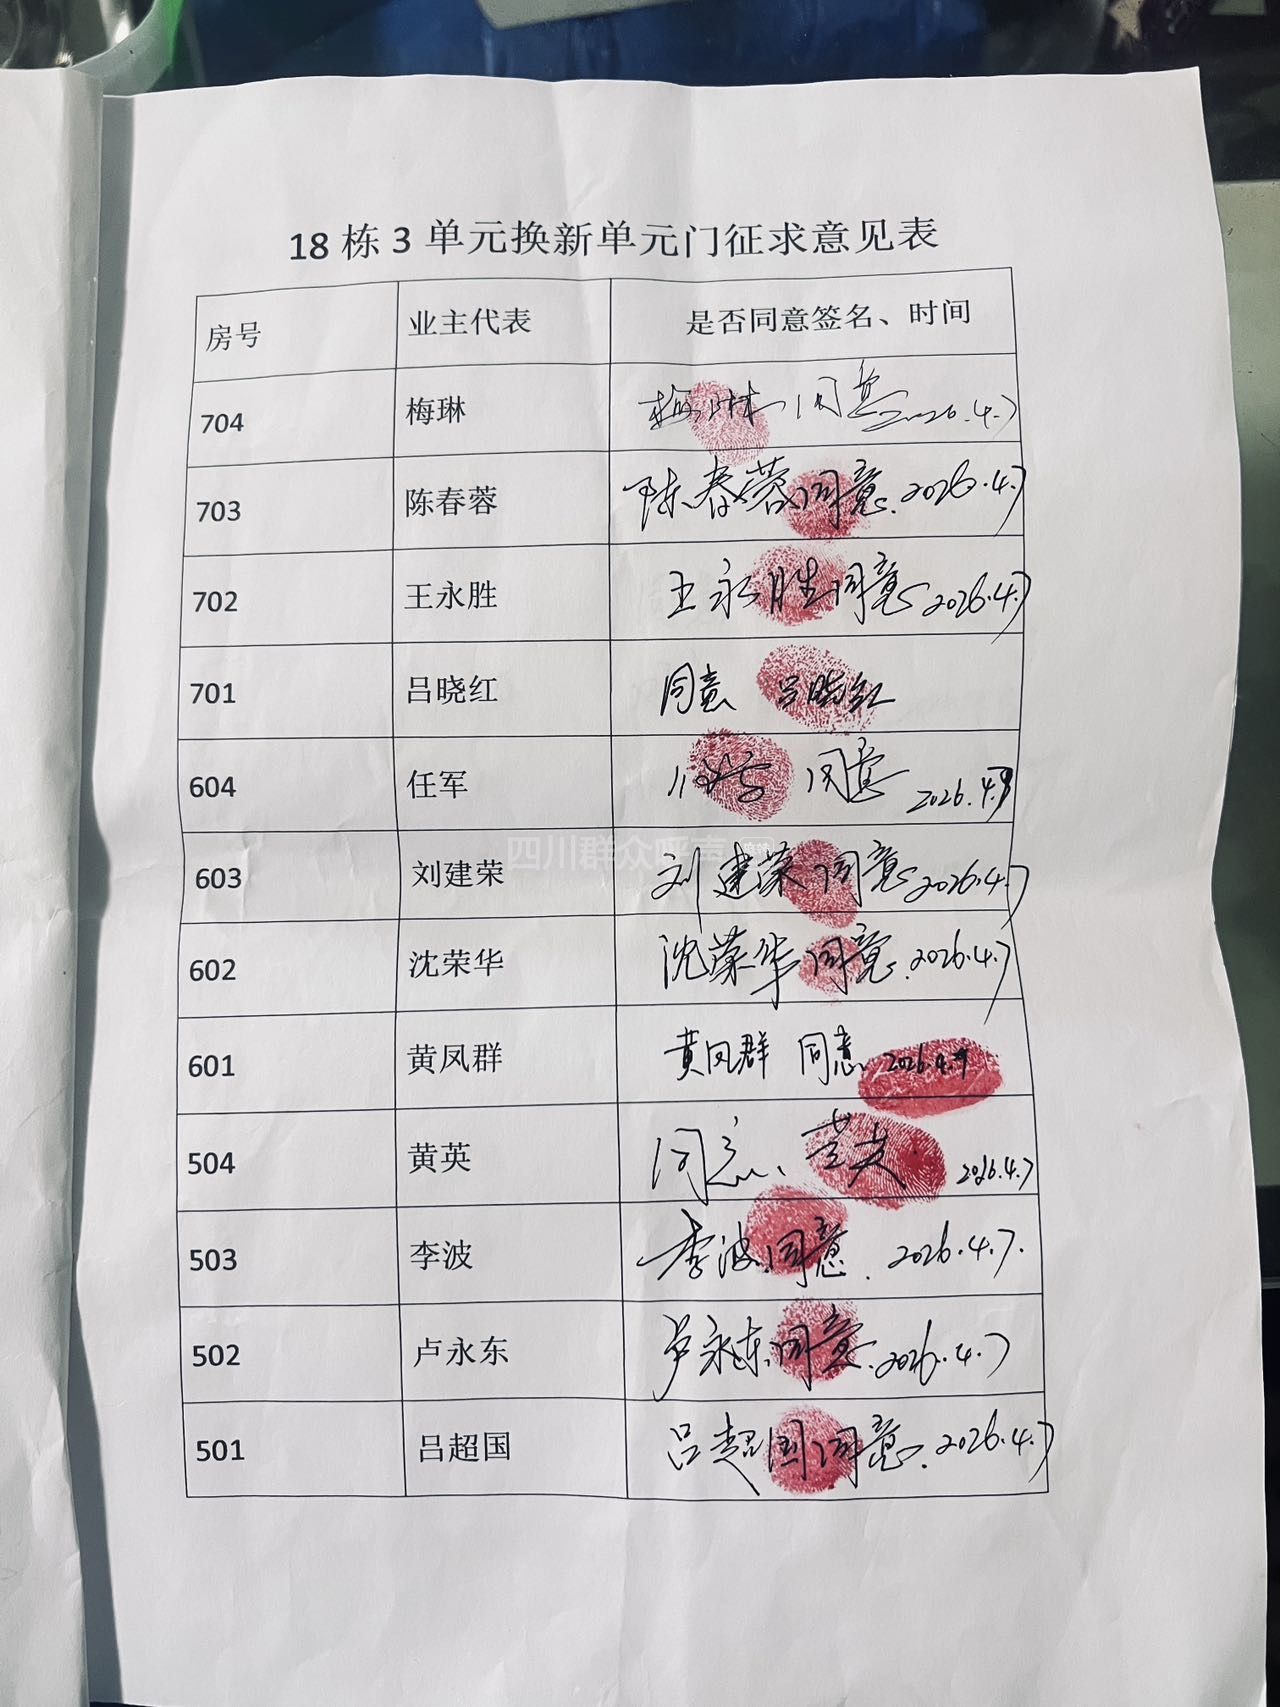 18栋3单元换新单元门征求意见表
房号 业主代表 是否同意签名、时间
704 梅琳 梅琳 同意 2026.4.7
703 陈春蓉 陈春蓉同意.2026.4.7
702 王永胜 王永胜同意 2026.4.7
701 吕晓红 同意 吕晓红
604 任军 同意 2026.4.
四川群众呼声
603 刘建荣 刘建荣同意 2026.4.7
602 沈荣华 沈荣华同意.2026.4.7
601 黄凤群 黄凤群 同意 2026.4.
504 黄英 同意、黄英 2026.4.7
503 李波 李波同意.2026.4.7.
502 卢永东 卢永东同意.2026.4.7
501 吕超国 吕超国同意.2026.4.7